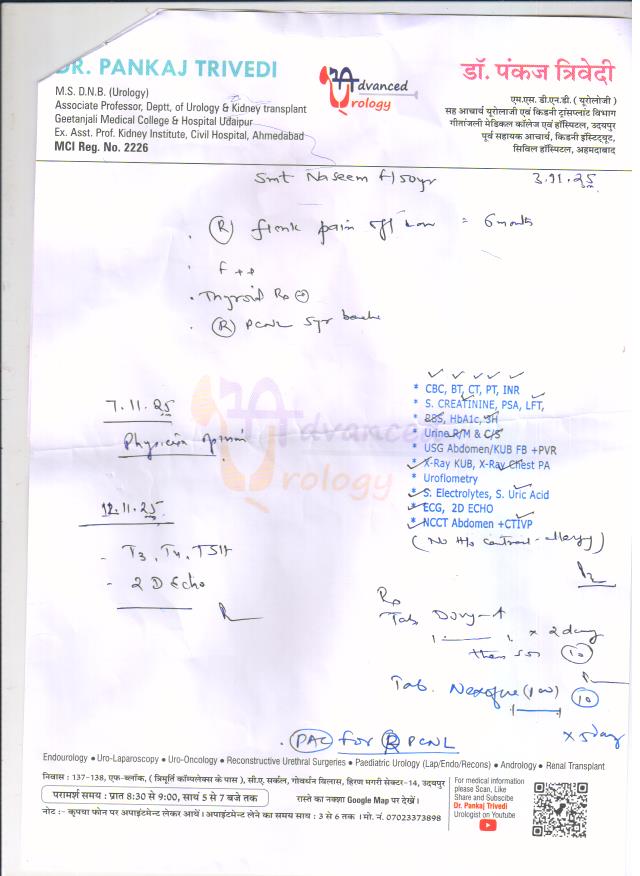 DR. PANKAJ TRIVEDI
M.S. D.N.B. (Urology)
Associate Professor, Deptt. of Urology & Kidney transplant
Geetanjali Medical College & Hospital Udaipur
Ex. Asst. Prof. Kidney Institute, Civil Hospital, Ahmedabad
MCI Reg. No. 2226
Advanced
Urology
डॉ. पंकज त्रिवेदी
एम.एस. डी.एन.डी. ( यूरोलोजी )
सह आचार्य यूरोलाजी एवं किडनी ट्रांसप्लांट विभाग
गीतांजली मेडिकल कॉलेज एवं हॉस्पिटल, उदयपुर
पूर्व सहायक आचार्य, किडनी इंस्टिट्यूट,
सिविल हॉस्पिटल, अहमदाबाद
Smt Naseem f/50yr
3.11.25
(R) flank pain = 6 months
F++
Thyroid
(R) PCNL 5yr back
7.11.25
Physician
12.11.25
- T3, T4, TSH
- 2 D Echo
Advanced
Urology
* CBC, BT, CT, PT, INR
* S. CREATININE, PSA, LFT,
* BBS, HbA1c, 3H
* Urine R/M & C/S
* USG Abdomen/KUB FB +PVR
* X-Ray KUB, X-Ray Chest PA
* Uroflometry
* S. Electrolytes, S. Uric Acid
* ECG, 2D ECHO
* NCCT Abdomen +CTIVP
(No H/o contrast allergy)
Rx
Tab
1 1 x 2 day
then SOS (10)
Tab. (10)
x 5 day
. (PAC) for (R) PCNL
Endourology • Uro-Laparoscopy • Uro-Oncology • Reconstructive Urethral Surgeries • Paediatric Urology (Lap/Endo/Recons) • Andrology • Renal Transplant
निवास : 137-138, एफ-ब्लॉक, ( त्रिमूर्ति कॉम्पलेक्स के पास ), सी.ए. सर्कल, गोवर्धन विलास, हिरण मगरी सेक्टर-14, उदयपुर
परामर्श समय : प्रात 8:30 से 9:00, सायं 5 से 7 बजे तक
रास्ते का नक्शा Google Map पर देखें।
नोट :- कृपया फोन पर अपाइंटमेन्ट लेकर आयें। अपाइंटमेन्ट लेने का समय साय : 3 से 6 तक । मो. नं. 07023373898
For medical information
please Scan, Like
Share and Subscibe
Dr. Pankaj Trivedi
Urologist on Youtube